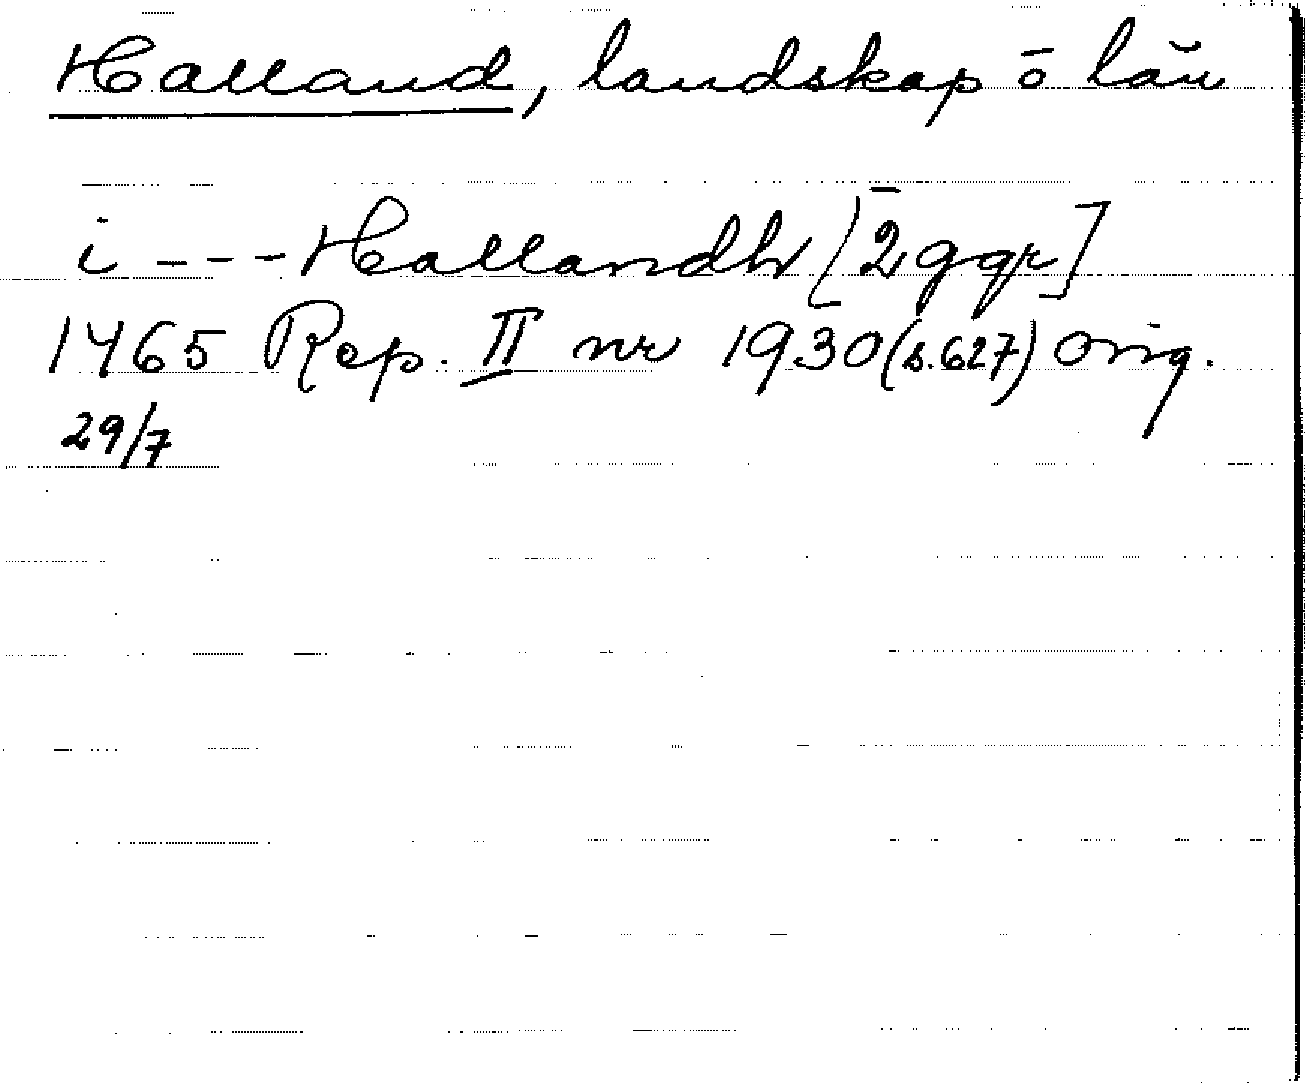 Halland, landskap o län
i --- Hallandh [2 ggr]
1465 Rep. II nr 1930 (s. 627) Orig.
29/7